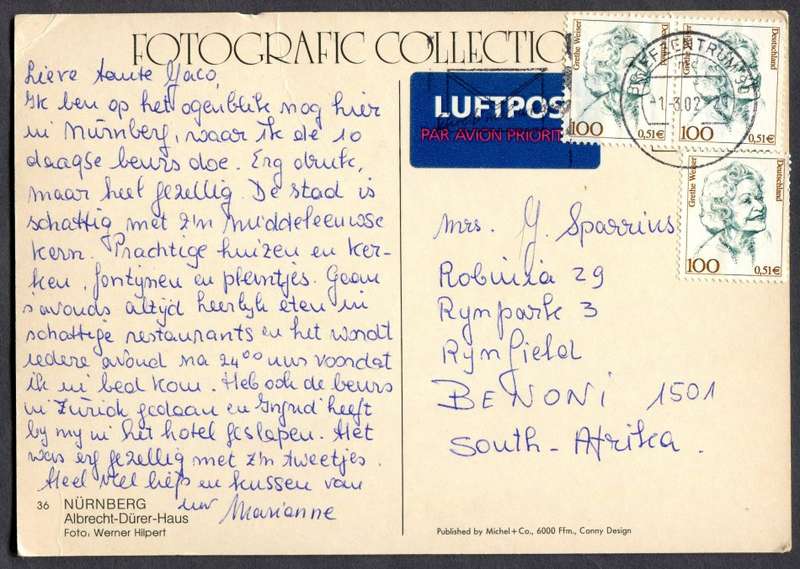 FOTOGRAFIC COLLECTIO
Lieve tante Jaco,
Ik ben op het ogenblik nog hier
in Nürnberg, waar ik de 10
daagse beurs doe. Erg druk,
maar heel gezellig. De stad is
schattig met z'n Middeleeuwse
kern. Prachtige huizen en ker-
ken, fontijnen en pleintjes. Gaan
's avonds altijd heerlijk eten in
schattige restaurants en het wordt
iedere avond na 24°° uur voordat
ik in bed kom. Heb ook de beurs
in Zürich gedaan en Ingrid heeft
bij mij in het hotel geslapen. Het
was erg gezellig met z'n tweetjes.
Heel veel liefs en kussen van
uw Marianne
36 NÜRNBERG
Albrecht-Dürer-Haus
Foto: Werner Hilpert
LUFTPOS
PAR AVION PRIORIT
Grethe Weiser
Deutschland
100
0,51€
Grethe Weiser
Deutschland
100
0,51€
Grethe Weiser
Deutschland
100
0,51€
BRIEFZENTRUM 90
-1-3.02-21
Mrs. J. Sparrius
Robinia 29
Rynpark 3
Rynfield
BENONI 1501
South-Afrika.
Published by Michel+Co., 6000 Ffm., Conny Design